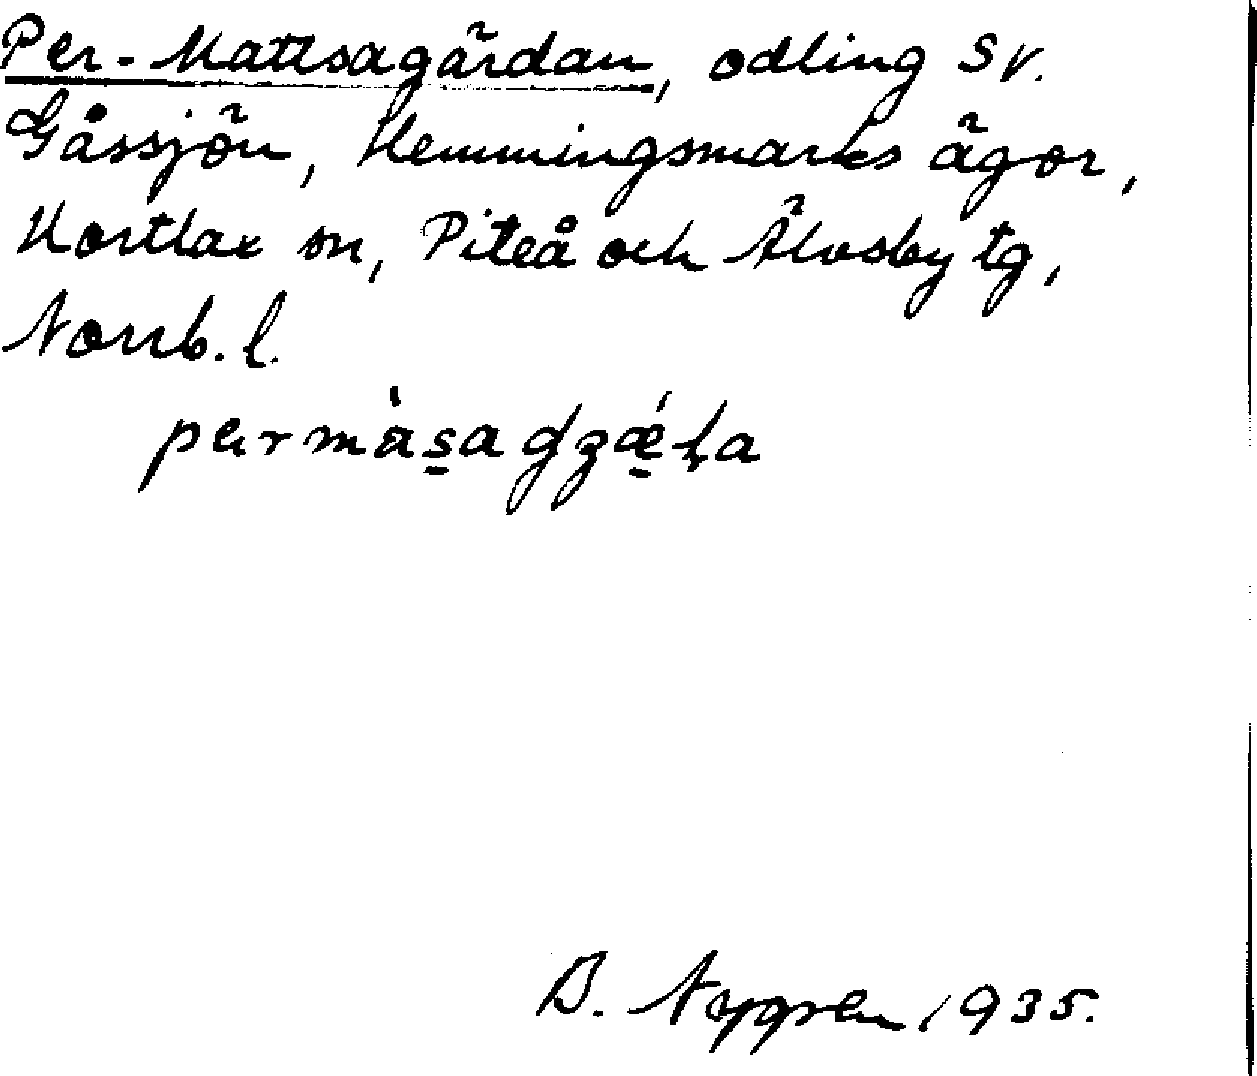 Per-Mattsagärdan, odling SV.
Gåssjön, Hemmingsmarks ägor,
Hortlax sn, Piteå och Älvsby tg,
Norrb. l.
pɛrmàs̠a dzǽ̠ɭa
B. Nygren 1935.